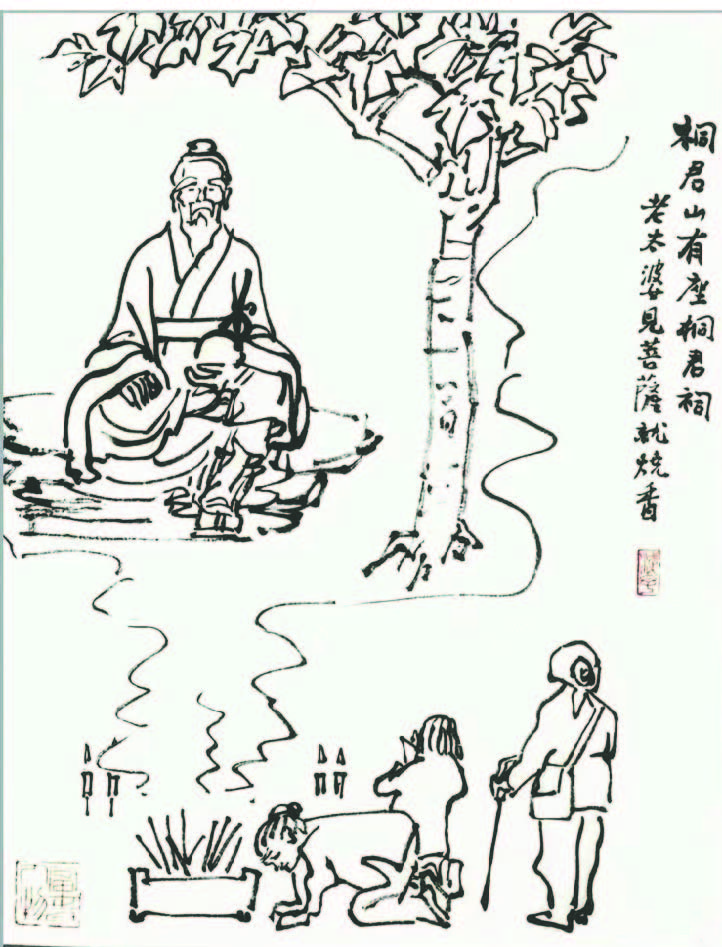 桐君山有座桐君祠
老太婆見菩薩就烧香